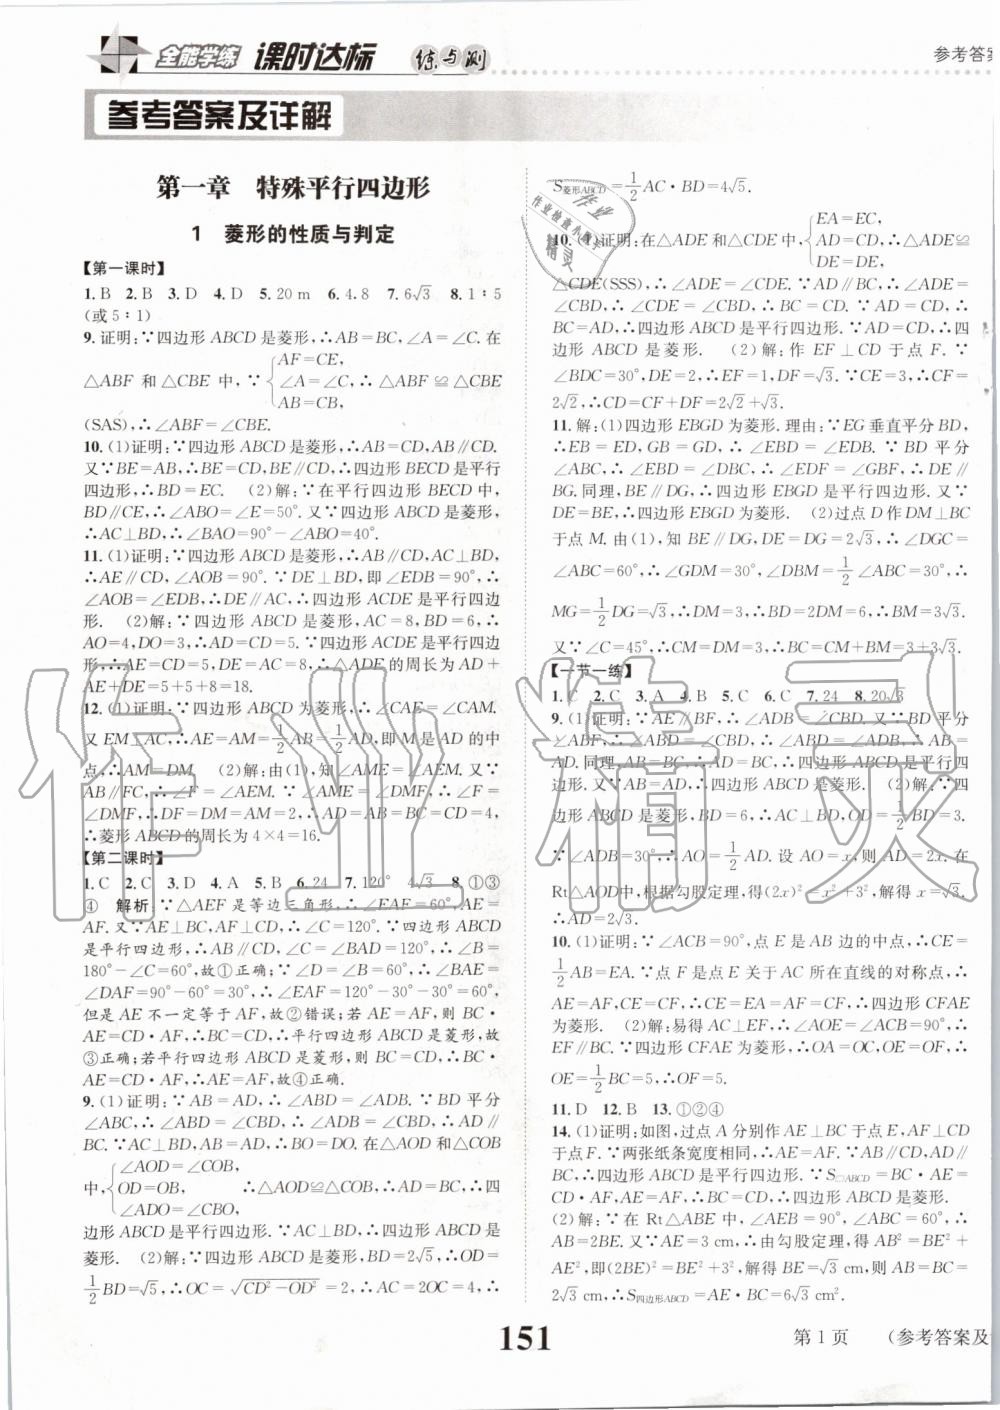 全能学练 课时达标 练与测
参考答案
参考答案及详解
第一章 特殊平行四边形
1 菱形的性质与判定
【第一课时】
1.B 2.B 3.D 4.D 5.20 m 6.4.8 7.6√3 8.1∶5
(或5∶1)
9.证明:∵四边形ABCD是菱形,∴AB=BC,∠A=∠C.在
AF=CE,
△ABF和△CBE中,∵{∠A=∠C,∴△ABF≌△CBE
AB=CB,
(SAS),∴∠ABF=∠CBE.
10.(1)证明:∵四边形ABCD是菱形,∴AB=CD,AB∥CD.
又∵BE=AB,∴BE=CD,BE∥CD,∴四边形BECD是平行
四边形,∴BD=EC. (2)解:∵在平行四边形BECD中,
BD∥CE,∴∠ABO=∠E=50°.又∵四边形ABCD是菱形,
∴AC⊥BD,∴∠BAO=90°-∠ABO=40°.
11.(1)证明:∵四边形ABCD是菱形,∴AB∥CD,AC⊥BD,
∴AE∥CD,∠AOB=90°.∵DE⊥BD,即∠EDB=90°,∴
∠AOB=∠EDB,∴DE∥AC,∴四边形ACDE是平行四边
形. (2)解:∵四边形ABCD是菱形,AC=8,BD=6,∴
AO=4,DO=3,∴AD=CD=5.∵四边形ACDE是平行四边
形,∴AE=CD=5,DE=AC=8,∴△ADE的周长为AD+
AE+DE=5+5+8=18.
12.(1)证明:∵四边形ABCD为菱形,∴∠CAE=∠CAM.
又EM⊥AC,∴AE=AM=1/2AB=1/2AD,即M是AD的中
点,∴AM=DM. (2)解:由(1),知∠AME=∠AEM.又∵
AB∥FC,∴∠F=∠AEM.∵∠AME=∠DMF,∴∠F=
∠DMF,∴DF=DM=AM=2,∴AB=BC=AD=CD=4,
∴菱形ABCD的周长为4×4=16.
【第二课时】
1.C 2.C 3.D 4.A 5.B 6.24 7.120° 4√3 8.①③
④ 解析:∵△AEF是等边三角形,∴∠EAF=60°,AE=
AF.又∵AE⊥BC,AF⊥CD,∴∠C=120°.∵四边形ABCD
是平行四边形,∴AB∥CD,∠C=∠BAD=120°,∴∠B=
180°-∠C=60°,故①正确;∵∠D=∠B=60°,∴∠BAE=
∠DAF=90°-60°=30°,∴∠EAF=120°-30°-30°=60°,
但是AE不一定等于AF,故②错误;若AE=AF,则BC·
AE=CD·AF,∴BC=CD,∴平行四边形ABCD是菱形,故
③正确;若平行四边形ABCD是菱形,则BC=CD,∴BC·
AE=CD·AF,∴AE=AF,故④正确.
9.(1)证明:∵AB=AD,∴∠ABD=∠ADB.∵BD平分
∠ABC,∴∠ABD=∠CBD,∴∠ADB=∠CBD,∴AD∥
BC.∵AC⊥BD,AB=AD,∴BO=DO.在△AOD和△COB
∠AOD=∠COB,
中,{OD=OB, ∴△AOD≌△COB,∴AD=CB,∴四
∠ADO=∠CBO,
边形ABCD是平行四边形.∵AC⊥BD,∴四边形ABCD是
菱形. (2)解:∵四边形ABCD是菱形,BD=2√5,∴OD=
1/2BD=√5,∴OC=√(CD²-OD²)=2,∴AC=2OC=4,∴
S菱形ABCD=1/2AC·BD=4√5.
EA=EC,
10.(1)证明:在△ADE和△CDE中,{AD=CD,∴△ADE≌
DE=DE,
△CDE(SSS),∴∠ADE=∠CDE.∵AD∥BC,∴∠ADE=
∠CBD,∴∠CDE=∠CBD,∴BC=CD.∵AD=CD,∴
BC=AD,∴四边形ABCD是平行四边形.∵AD=CD,∴四
边形ABCD是菱形. (2)解:作EF⊥CD于点F.∵∠BDC=
∠DBC=30°,DE=2,∴EF=1,DF=√3.∵CE=2EF… 
2√2,∴CD=CF+DF=2√2+√3.
11.解:(1)四边形EBGD为菱形.理由:∵EG垂直平分BD,
∴EB=ED,GB=GD,∴∠EBD=∠EDB.∵BD平分
∠ABC,∴∠EBD=∠DBC,∴∠EDF=∠GBF,∴DE∥
BG.同理,BE∥DG,∴四边形EBGD是平行四边形.又∵
DE=BE,∴四边形EBGD为菱形. (2)过点D作DM⊥BC
于点M.由(1),知BE∥DG,DE=DG=2√3,∴∠DGC=
∠ABC=60°,∴∠GDM=30°,∠DBM=1/2∠ABC=30°,∴
MG=1/2DG=√3,∴DM=3,∴BD=2DM=6,∴BM=3√3.
又∵∠C=45°,∴CM=DM=3,∴BC=CM+BM=3+3√3.
【一节一练】
1.C 2.C 3.A 4.B 5.C 6.C 7.24 8.20√3
9.(1)证明:∵AE∥BF,∴∠ADB=∠CBD.又∵BD平分
∠ABF,∴∠ABD=∠CBD,∴∠ABD=∠ADB,∴AB=
AD.同理,AB=BC,∴AD=BC,∴四边形ABCD是平行四边
形.又∵AB=AD,∴四边形ABCD是菱形. (2)解:∵四
边形ABCD是菱形,BD=6,∴AC⊥BD,OD=1/2BD=3.
∵∠ADB=30°,∴AO=1/2AD.设AO=x,则AD=2x.在
Rt△AOD中,根据勾股定理,得(2x)²=x²+3²,解得x=√3,
∴AD=2√3.
10.(1)证明:∵∠ACB=90°,点E是AB边的中点,∴CE=
1/2AB=EA.∵点F是点E关于AC所在直线的对称点,∴
AE=AF,CE=CF,∴CE=EA=AF=CF,∴四边形CFAE
为菱形. (2)解:易得AC⊥EF,∴∠AOE=∠ACB=90°,∴
EF∥BC.∵四边形CFAE为菱形,∴OA=OC,OE=OF,∴
OE=1/2BC=5,∴OF=5.
11.D 12.B 13.①②④
14.(1)证明:如图,过点A分别作AE⊥BC于点E,AF⊥CD
于点F.∵两张纸条宽度相同,∴AE=AF.∵AB∥CD,AD∥
BC,∴四边形ABCD是平行四边形.∵S▱ABCD=BC·AE=
CD·AF,AE=AF,∴BC=CD,∴四边形ABCD是菱形.
(2)解:∵在Rt△ABE中,∠AEB=90°,∠ABC=60°,∴
AB=2BE.又∵AE=3 cm,∴由勾股定理,得AB²=BE²+
AE²,即(2BE)²=BE²+3²,解得BE=√3 cm,则AB=BC=
2√3 cm,∴S四边形ABCD=AE·BC=6√3 cm².
151
第1页 (参考答案及
作业精灵
作业
作业检查小助手
精灵